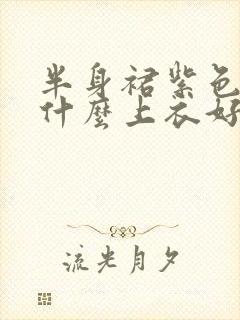 半身裙紫色
什麼上衣好
流光月夕